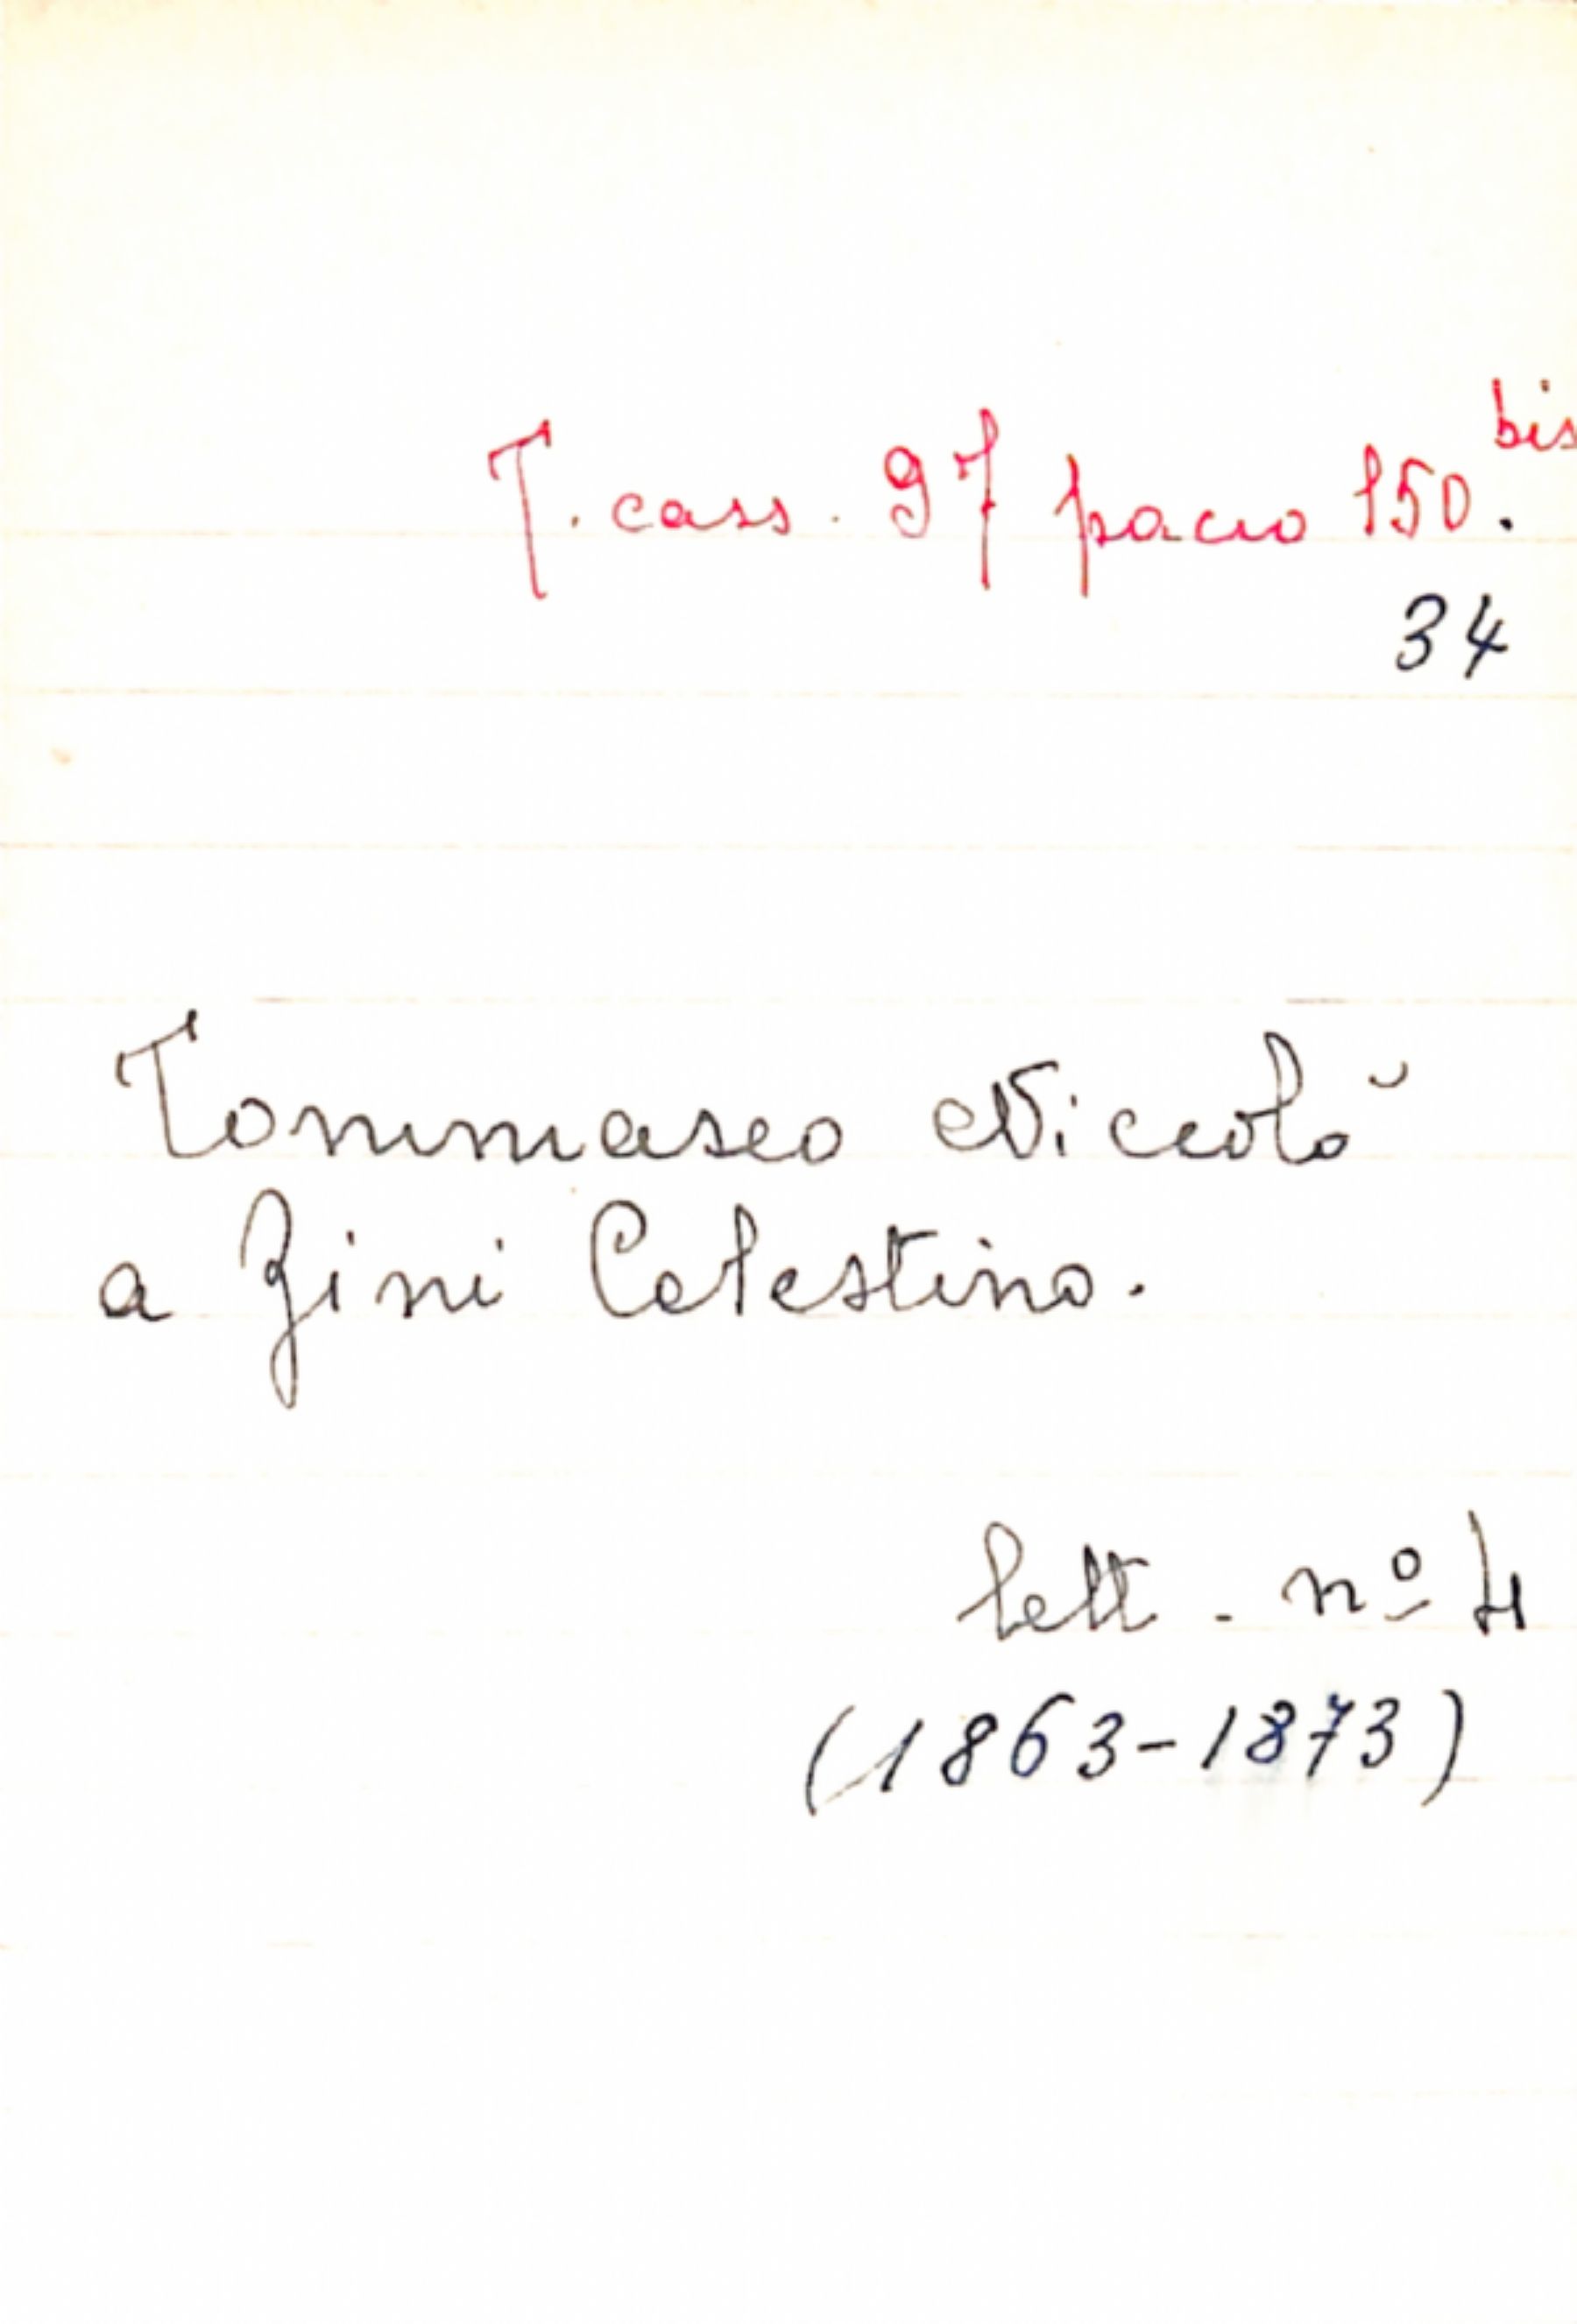 T. cass. 97 pacco 150.bis
34
Tommaseo Niccolò
a Zini Celestino.
lett. nº 4
(1863-1873)